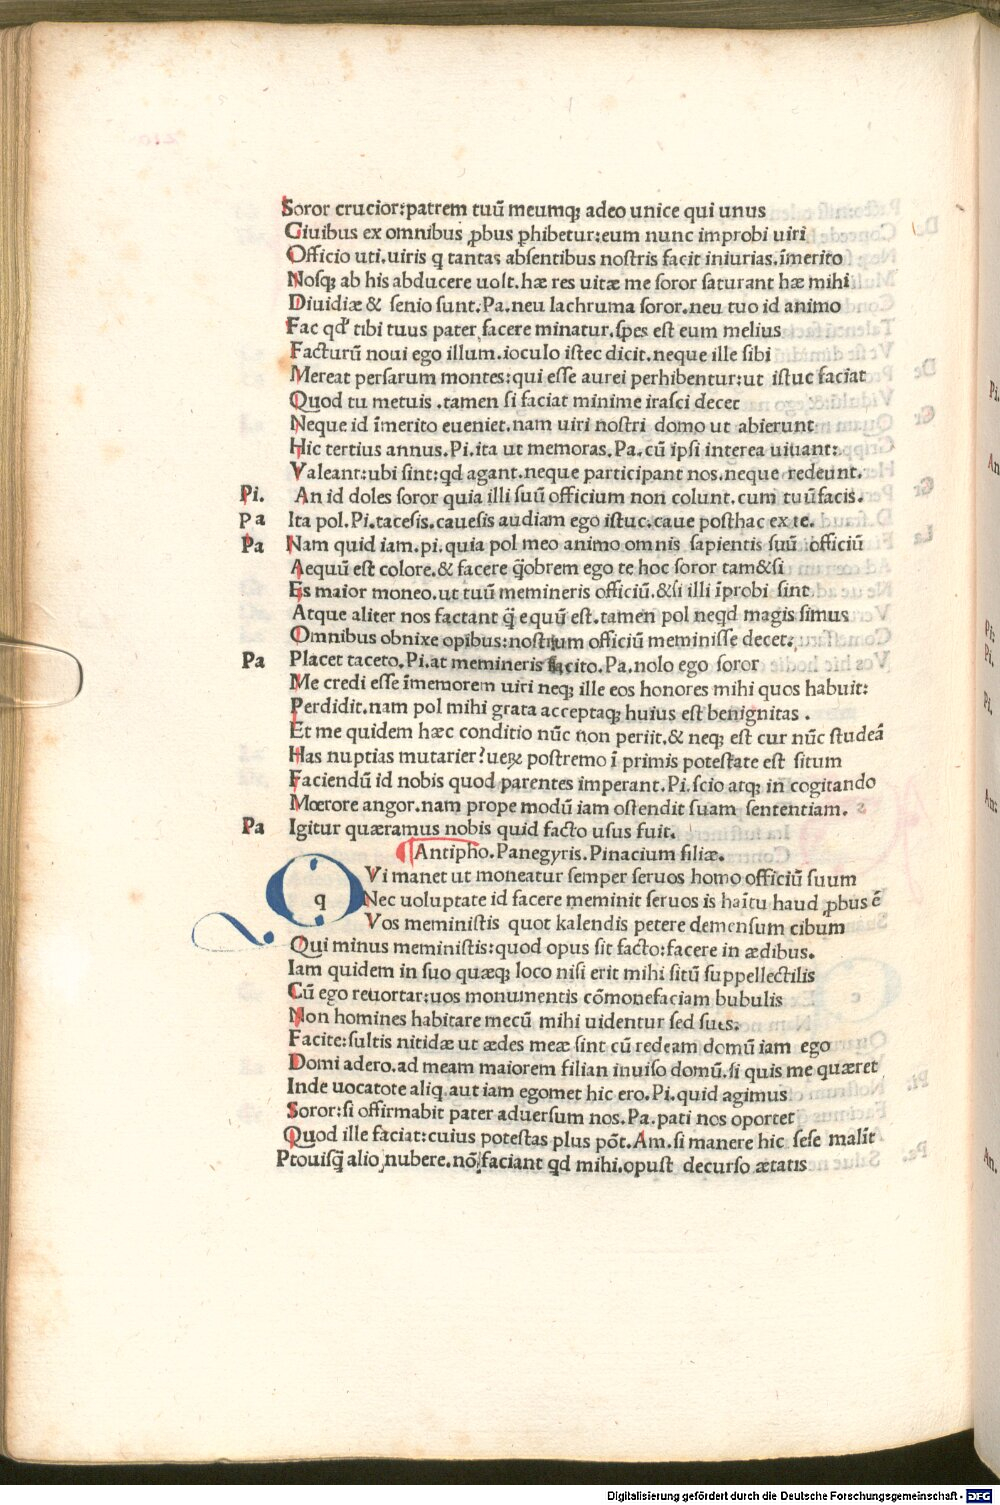 Soror crucior:patrem tuũ meumq; adeo unice qui unus
Ciuibus ex omnibus ꝓbus ꝑhibetur:eum nunc improbi uiri
Officio uti.uiris q tantas absentibus nostris facit iniurias.ĩmerito
Nosq; ab his abducere uolt.hæ res uitæ me soror saturant hæ mihi
Diuidiæ & senio sunt.Pa.neu lachruma soror.neu tuo id animo
Fac qd' tibi tuus pater facere minatur.spes est eum melius
Facturũ noui ego illum.ioculo istec dicit.neque ille sibi
Mereat persarum montes:qui esse aurei perhibentur:ut istuc faciat
Quod tu metuis .tamen si faciat minime irasci decet
Neque id ĩmerito eueniet.nam uiri nostri domo ut abierunt
Hic tertius annus.Pi.ita ut memoras.Pa.cũ ipsi interea uiuant:
Valeant:ubi sint:qd agant.neque participant nos.neque redeunt.
Pi. An id doles soror quia illi suũ officium non colunt.cum tuũ facis.
Pa Ita pol.Pi.tacesis.cauesis audiam ego istuc.caue posthac ex te.
Pa Nam quid iam.pi.quia pol meo animo omnis sapientis suũ officiũ
Aequũ est colore.& facere q̃obrem ego te hoc soror tam&si
Es maior moneo.ut tuũ memineris officiũ.&si illi ĩprobi sint
Atque aliter nos factant q̃ equũ est.tamen pol neqd magis simus
Omnibus obnixe opibus:nostrum officiũ meminisse decet.
Pa Placet taceto.Pi.at memineris facito.Pa.nolo ego soror
Me credi esse ĩmemorem uiri neq; ille eos honores mihi quos habuit:
Perdidit.nam pol mihi grata acceptaq; huius est benignitas .
Et me quidem hæc conditio nũc non periit.& neq; est cur nũc studeã
Has nuptias mutarier?ueꝝ postremo ĩ primis potestate est situm
Faciendũ id nobis quod parentes imperant.Pi.scio atq; in cogitando
Mœrore angor.nam prope modũ iam ostendit suam sententiam.
Pa Igitur quæramus nobis quid facto usus fuit.
Antipho.Panegyris.Pinacium filiæ.
q Vi manet ut moneatur semper seruos homo officiũ suum
Nec uoluptate id facere meminit seruos is haĩtu haud ꝓbus ẽ
Vos meministis quot kalendis petere demensum cibum
Qui minus meministis:quod opus sit facto:facere in ædibus.
Iam quidem in suo quæq; loco nisi erit mihi sitũ suppellectilis
Cũ ego reuortar:uos monumentis cõmonefaciam bubulis
Non homines habitare mecũ mihi uidentur sed sues.
Facite:sultis nitidæ ut ædes meæ sint cũ redeam domũ iam ego
Domi adero.ad meam maiorem filian inuiso domũ.si quis me quæret
Inde uocatote aliq.aut iam egomet hic ero.Pi.quid agimus
Soror:si offirmabit pater aduersum nos.Pa.pati nos oportet
Quod ille faciat:cuius potestas plus põt.Am.si manere hic sese malĩt
Ptouisq̃ alio nubere.nõ faciant qd mihi.opust decurso ætatis
Digitalisierung gefördert durch die Deutsche Forschungsgemeinschaft - DFG